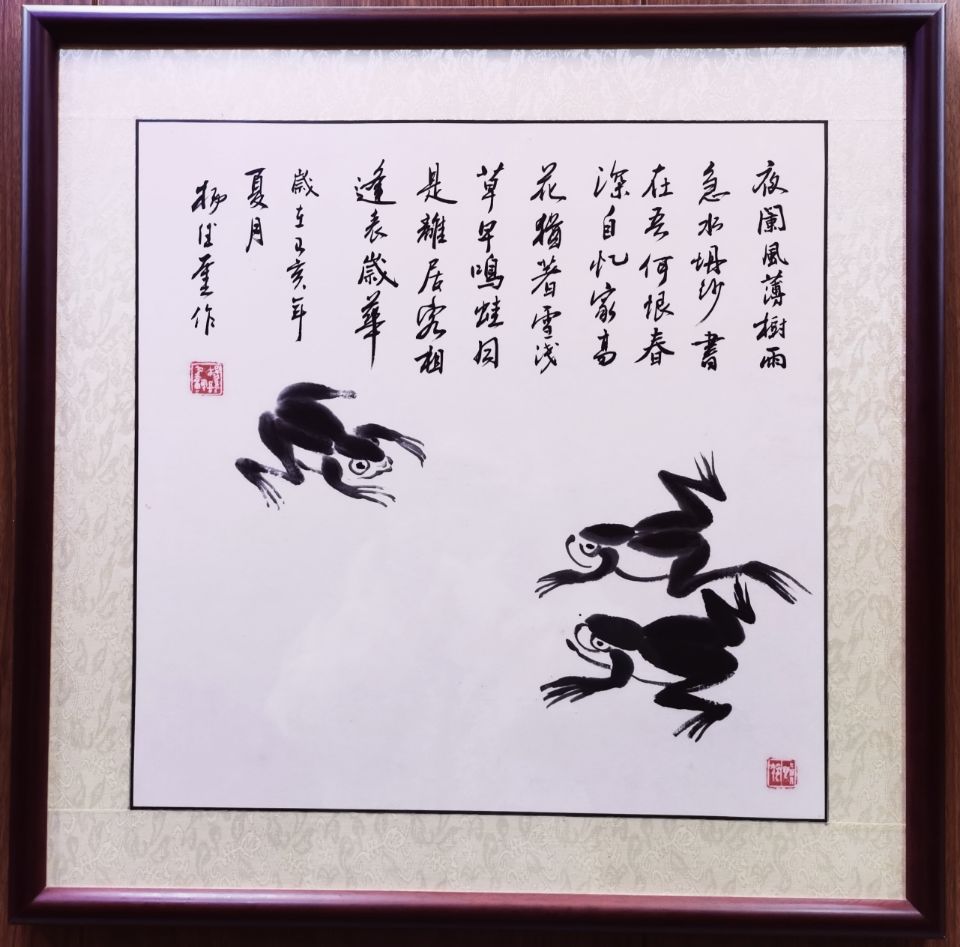 夜闌風薄樹雨
急水塌沙書
在吾何恨春
深自忆家高
花猶著雪浅
草早鳴蛙同
是離居客相
逢表歲華
歲在己亥年
夏月
作